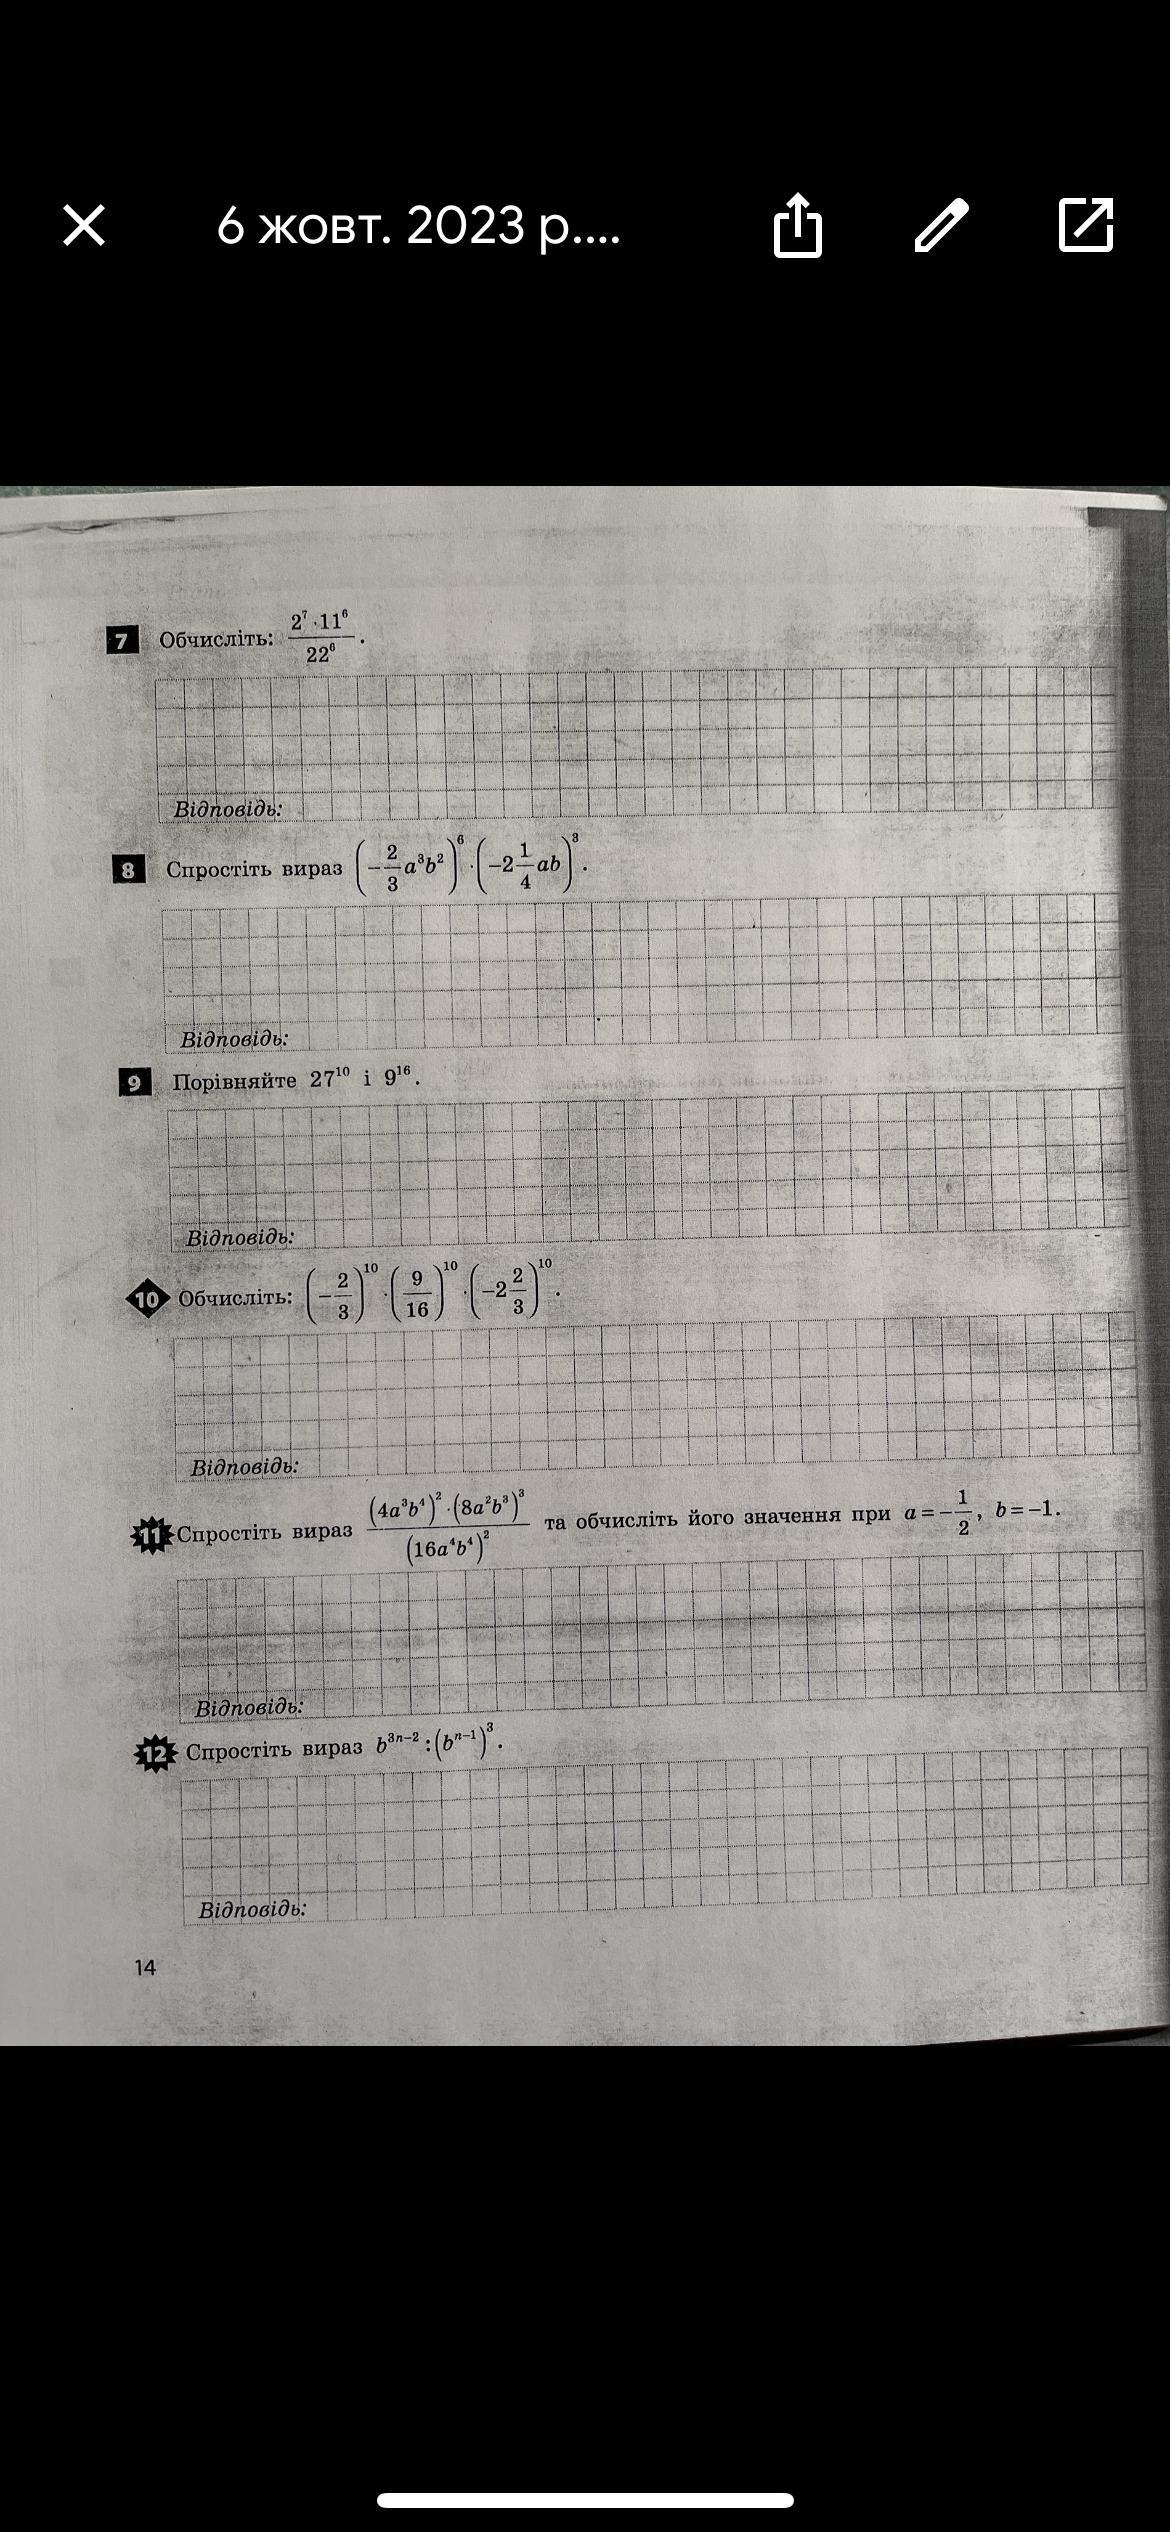 6 жовт. 2023 р....
7 Обчисліть: (2⁷ · 11⁶)/(22⁶).
Відповідь:
8 Спростіть вираз (−2/3 a³b²)⁶ · (−2 1/4 ab)³.
Відповідь:
9 Порівняйте 27¹⁰ і 9¹⁶.
Відповідь:
10 Обчисліть: (−2/3)¹⁰ · (9/16)¹⁰ · (−2 2/3)¹⁰.
Відповідь:
11 Спростіть вираз ((4a³b⁴)² · (8a²b³)³)/((16a⁴b⁴)²) та обчисліть його значення при a = −1/2, b = −1.
Відповідь:
12 Спростіть вираз b³ⁿ⁻² : (bⁿ⁻¹)³.
Відповідь:
14